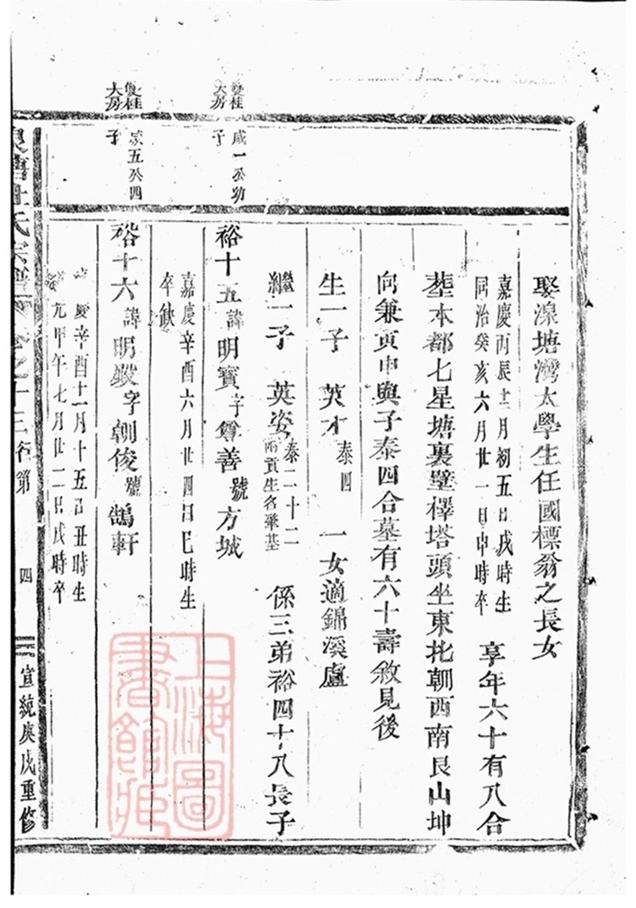 娶湶塘灣太學生任國標翁之長女
嘉慶丙辰十二月初五日戌時生
同治癸亥六月廿一日申時卒
享年六十有八合
塟本都七星塘裏壁檡塔頭坐東北朝西南艮山坤
向兼寅申與子泰四合墓有六十壽敘見後
生一子 英才 泰四 一女適錦溪盧
繼一子 英姿 泰二十二
係三弟裕四十八長子
雙桂
大房
咸一公幼
子
裕十五 諱 明寶 字 尊善 號 方城
嘉慶辛酉六月廿四日巳時生
卒缺
雙桂
大房
五公四
子
裕十六 諱 明 字 朝俊 號 鵠軒
辛酉十二月十五日丑時生
元甲午七月廿二日戌時卒
杜氏宗譜
第
四
宣統庚戌重修
上海圖
書館藏